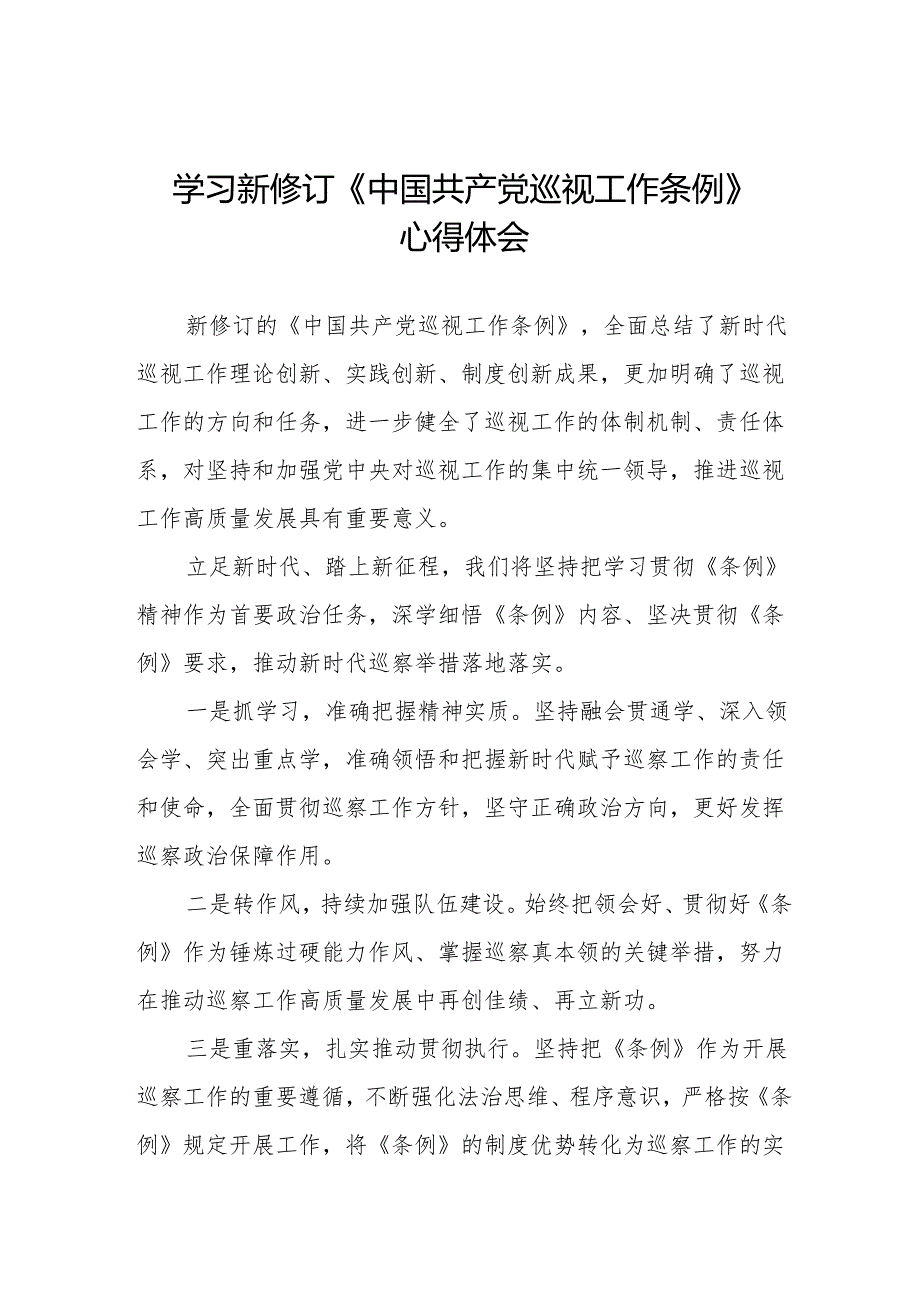 学习新修订《中国共产党巡视工作条例》
心得体会
新修订的《中国共产党巡视工作条例》，全面总结了新时代
巡视工作理论创新、实践创新、制度创新成果，更加明确了巡视
工作的方向和任务，进一步健全了巡视工作的体制机制、责任体
系，对坚持和加强党中央对巡视工作的集中统一领导，推进巡视
工作高质量发展具有重要意义。
立足新时代、踏上新征程，我们将坚持把学习贯彻《条例》
精神作为首要政治任务，深学细悟《条例》内容、坚决贯彻《条
例》要求，推动新时代巡察举措落地落实。
一是抓学习，准确把握精神实质。坚持融会贯通学、深入领
会学、突出重点学，准确领悟和把握新时代赋予巡察工作的责任
和使命，全面贯彻巡察工作方针，坚守正确政治方向，更好发挥
巡察政治保障作用。
二是转作风，持续加强队伍建设。始终把领会好、贯彻好《条
例》作为锤炼过硬能力作风、掌握巡察真本领的关键举措，努力
在推动巡察工作高质量发展中再创佳绩、再立新功。
三是重落实，扎实推动贯彻执行。坚持把《条例》作为开展
巡察工作的重要遵循，不断强化法治思维、程序意识，严格按《条
例》规定开展工作，将《条例》的制度优势转化为巡察工作的实